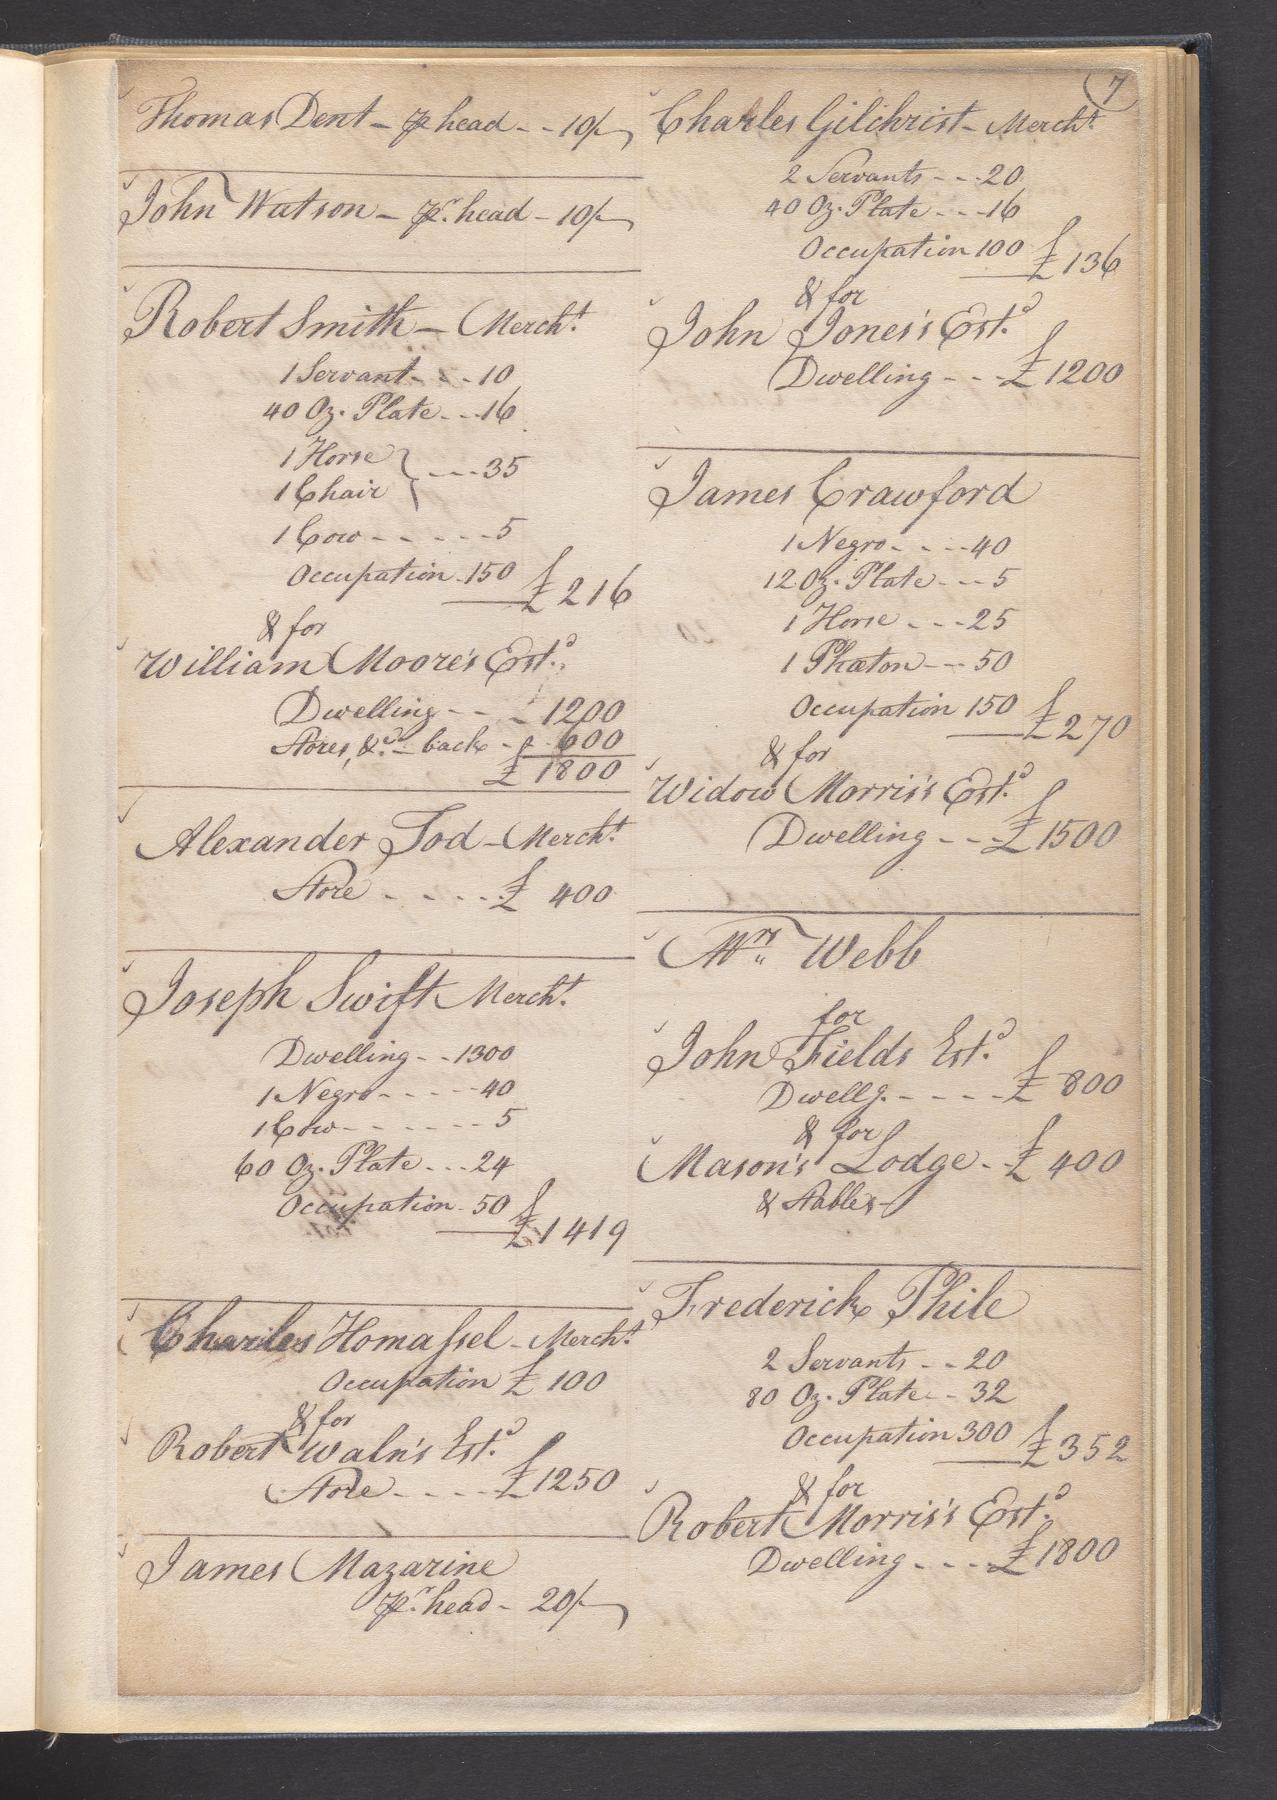 7
Thomas Dent – pr head – – 10/–
John Watson – pr. head – 10/–
Robert Smith – Mercht.
1 Servant - - - 10
40 Oz. Plate - - 16
1 Horse } - - - 35
1 Chair
1 Cow - - - - - - 5
Occupation - 150 £216
& for
William Moore's Estd.
Dwelling - - - 1200
Stores, &c. – back - 600
£ 1800
Alexander Tod – Mercht.
Store - - - - £ 400
Joseph Swift Mercht.
Dwelling - - 1300
1 Negro - - - - 40
1 Cow - - - - - - 5
60 Oz. Plate - - - 24
Occupation - 50 £1419
Charles Homassel – Mercht.
Occupation £ 100
& for
Robert Waln's Estd.
Store - - - - £1250
James Mazarine
pr. head – 20/–
Charles Gilchrist – Mercht.
2 Servants - - - 20
40 Oz. Plate - - - 16
Occupation 100 £136
& for
John Jones's Estd.
Dwelling - - - £1200
James Crawford
1 Negro - - - - 40
12 Oz. Plate - - - 5
1 Horse - - - 25
1 Phæton - - - 50
Occupation 150 £270
& for
Widow Morris's Estd.
Dwelling - - - £1500
Mrs. Webb
for
John Fields Estd.
Dwellg. - - - - - £ 800
& for
Mason's Lodge - - £ 400
& Stables –
Frederick Phile
2 Servants - - 20
80 Oz. Plate - - 32
Occupation 300 £352
& for
Robert Morris's Estd.
Dwelling - - - - £1800